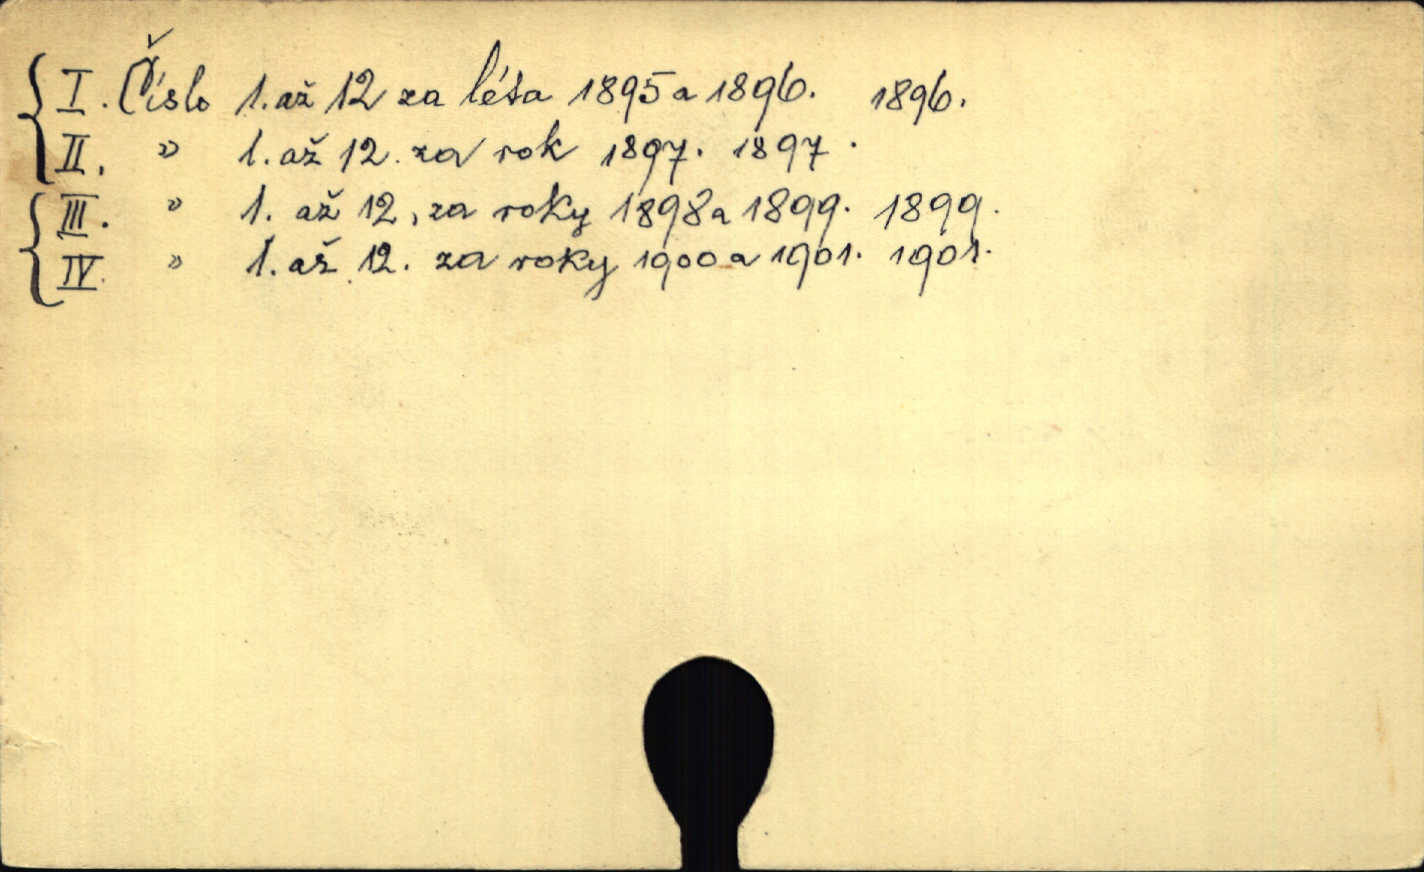 I. Číslo 1. až 12 za léta 1895 a 1896. 1896.
II. " 1. až 12. za rok 1897. 1897.
III. " 1. až 12, za roky 1898 a 1899. 1899.
IV. " 1. až 12. za roky 1900 a 1901. 1901.